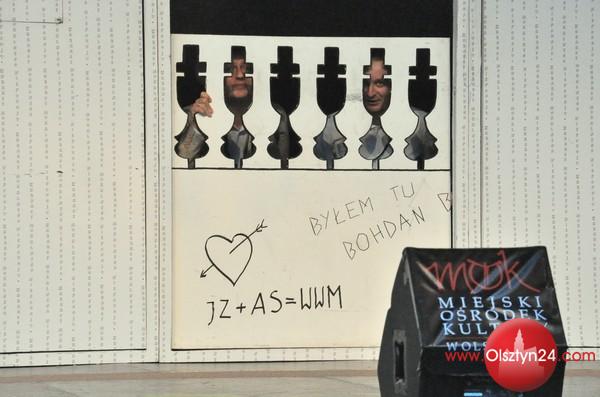 BYŁEM TU
BOHDAN B
JZ + AS = WWM
mok
MIEJSKI
OŚRODEK
www.Olsztyn24.com